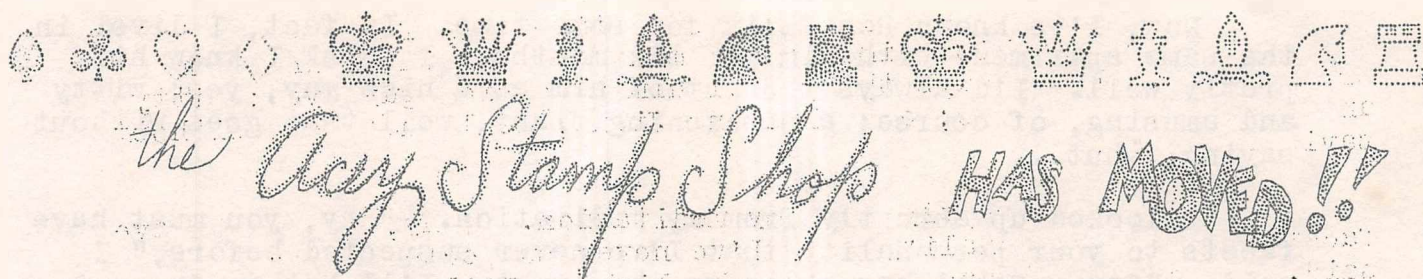 the Acey Stamp Shop HAS MOVED!!